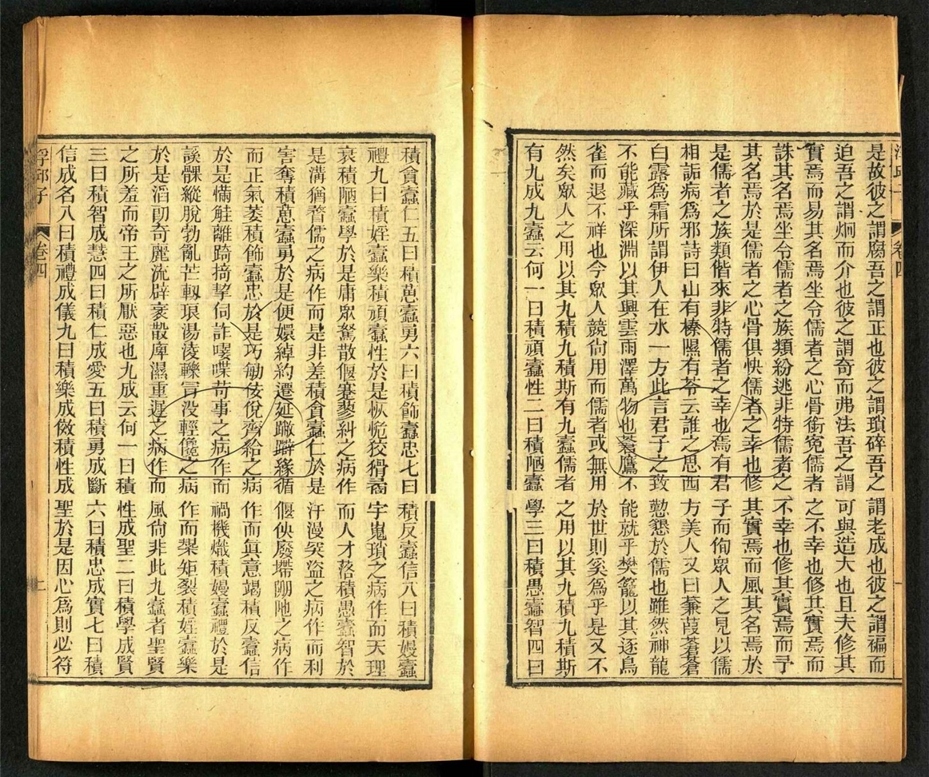 是故彼之謂腐吾之謂正也彼之謂瑣碎吾之謂老成也彼之謂褊而
迫吾之謂炯而介也彼之謂奇而弗法吾之謂可與造大也且夫修其
實焉而易其名焉坐令儒者之心骨銜寃儒者之不幸也修其實焉而
誅其名焉坐令儒者之族類紛逃非特儒者之不幸也修其實焉而予
其名焉於是儒者之心骨俱快儒者之幸也修其實焉而風其名焉於
是儒者之族類偕來非特儒者之幸也焉有君子而徇眾人之見以儒
相詬病爲邪詩曰山有榛隰有苓云誰之思西方美人又曰蒹葭蒼蒼
白露爲霜所謂伊人在水一方此言君子之致懃懇於儒也雖然神龍
不能藏乎深淵以其興雲雨澤萬物也蒼鷹不能就乎樊籠以其逐鳥
雀而退不祥也今眾人競尙用而儒者或無用於世則奚爲乎是又不
然矣眾人之用以其九積九積斯有九蠹儒者之用以其九積九積斯
有九成九蠹云何一曰積頑蠹性二曰積陋蠹學三曰積愚蠹智四曰
積貪蠹仁五曰積葸蠹勇六曰積飾蠹忠七曰積反蠹信八曰積嫚蠹
禮九曰積婬蠹樂積頑蠹性於是恢恑狡猾矞宇嵬瑣之病作而天理
衰積陋蠹學於是庸眾駑散偃蹇蓼糾之病作而人才落積愚蠹智於
是溝猶瞀儒之病作而是非差積貪蠹仁於是汙漫突盜之病作而利
害奪積葸蠹勇於是便嬛綽約遷延蹴躃緣循偃佒廢墆陁之病作
而正氣萎積飾蠹忠於是巧勮佞侻齊給之病作而眞意竭積反蠹信
於是觟離跂掎挈伺詐嘍喋苛事之病作而禍機熾積嫚蠹禮於是
謑髁縱脫勃亂芒軔琅湯淩轢冒沒輕儳之病作而榘矩裂積婬蠹樂
於是滔剻奇麗流辟衺散庳濕重遲之病作而風尙非此九蠹者聖賢
之所羞而帝王之所厭惡也九成云何一曰積性成聖二曰積學成賢
三曰積智成慧四曰積仁成愛五曰積勇成斷六曰積忠成實七曰積
信成名八曰積禮成儀九曰積樂成儆積性成聖於是因心爲則必符
浮邱子
卷四